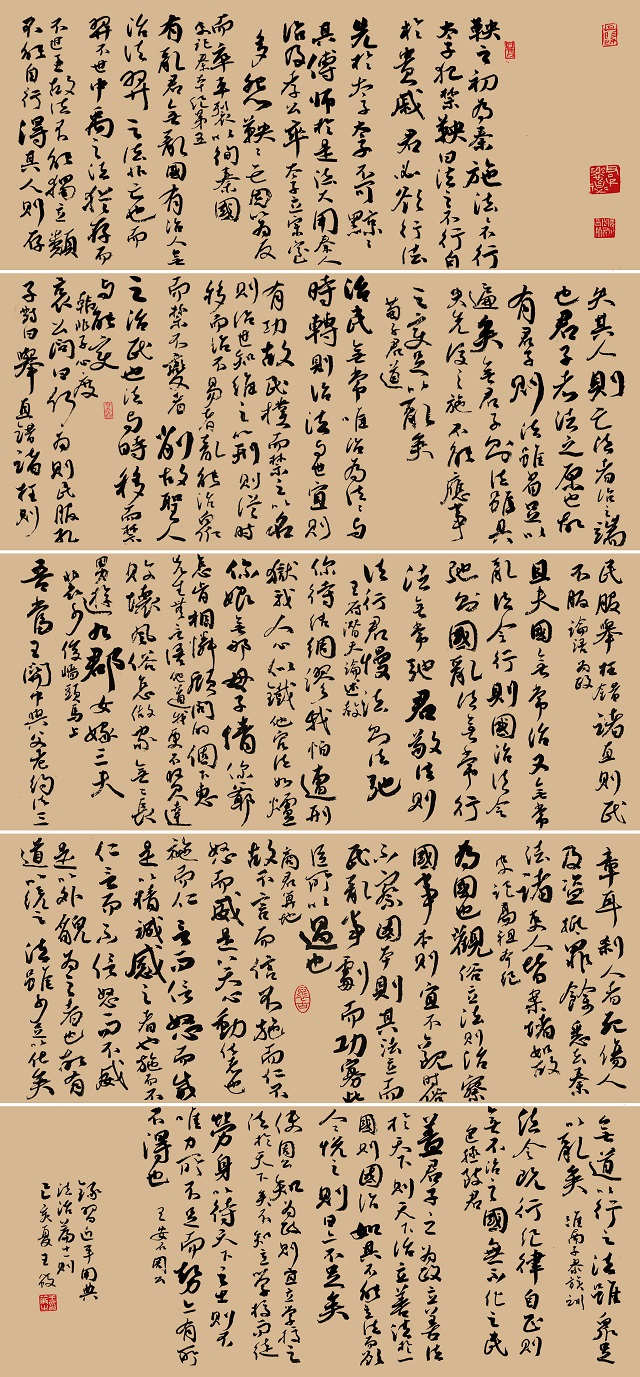 鞅之初為秦施法法不行
太子犯禁鞅曰法之不行自
於貴戚君必欲行法
先於太子太子不可黥黥
其傅師於是法大用秦人
治及孝公卒太子立宗室
多怨鞅鞅亡因以為反
而卒車裂以徇秦國
史記秦本紀第五
有亂君無亂國有治人無
治法羿之法非亡也而
羿不世中禹之法猶存而
不世王故法不能獨立類
不能自行得其人則存
失其人則亡法者治之端
也君子者法之原也故
有君子則法雖省足以
遍矣無君子則法雖具
失先後之施不能應事
之變足以亂矣
荀子君道
治民無常唯治為法法與
時轉則治法與世宜則
有功故民樸而禁之以名
則治世知維之以刑則從時
移而治不易者亂能治眾
而禁不變者削故聖人
之治民也法與時移而禁
與能變
韓非子心度
哀公問曰何為則民服孔
子對曰舉直錯諸枉則
民服舉枉錯諸直則民
不服論語為政
且夫國無常治又無常
亂法令行則國治法令
弛則國亂法無常行
法無常弛君敬法則
法行君慢法則法弛
王符潛夫論述赦
你待法網漏我怕遭刑
獄我人心似鐵他官法如爐
你娘無那母子情你爺
怎肯相憐顧問的個不
先生之語他道我更不賢達
敗壞風俗怎做家無二長
男遊九郡女嫁三夫
裴少俊牆頭馬上
吾當王關中與父老約法三
章耳殺人者死傷人
及盜抵罪餘悉去秦
法諸吏人皆案堵如故
史記高祖本紀
為國也觀俗立法則治察
國事本則宜不觀時俗
不察國本則其法立而
民亂事劇而功寡此
臣所以過也
商君算地
故不言而信不施而仁不
怒而威是以天心動化者也
施而仁言而信怒而威
是以精誠感之者也施而不
仁言而不信怒而不威
是以外貌為之者也故有
道以統之法雖少足以化矣
無道以行之法雖眾足
以亂矣 淮南子泰族訓
法令既行紀律自正則
無不治之國無不化之民
包拯致君
蓋君子之為政立善法
於天下則天下治立善法於一
國則國治如其不能立法而欲
人悅之則日亦不足矣
使周公知為政則宜立學校之
法於天下矣不知立學校而徒
勞身以待天下之士則不
唯力所不足而勢亦有所
不得也 王安石周公
錄習近平用典
法治篇十一則
己亥夏王筱